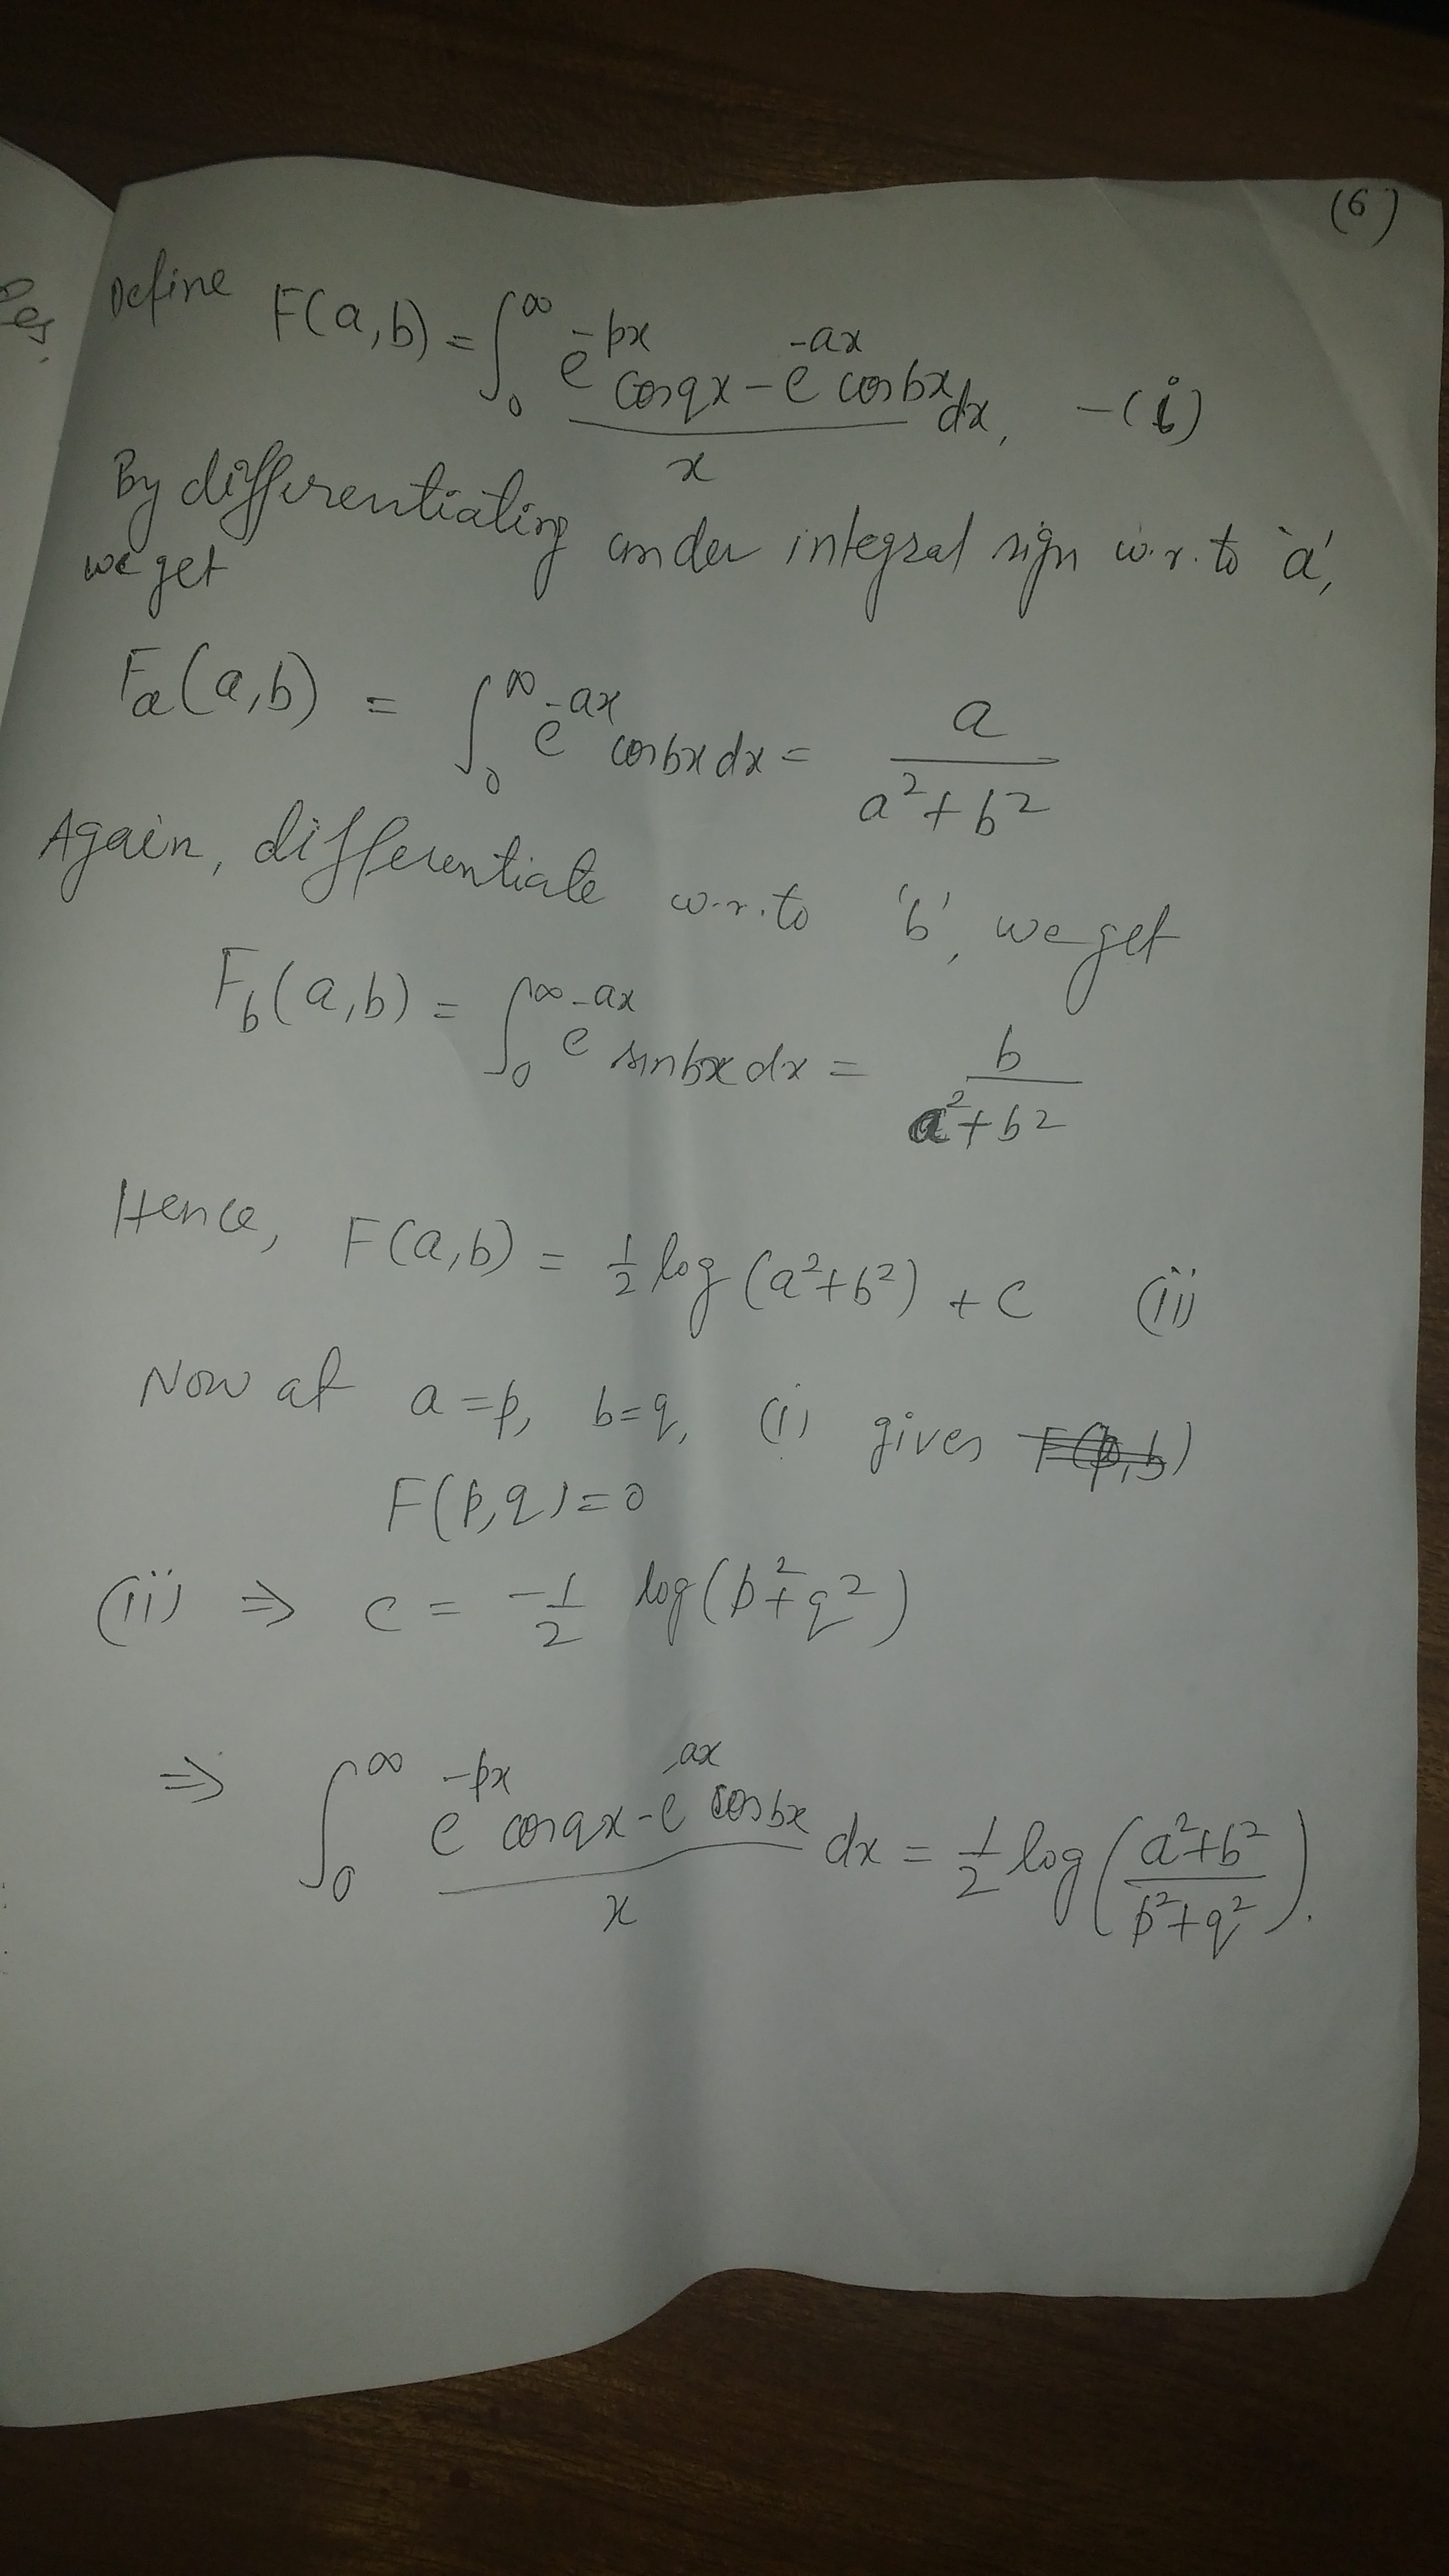 (6)
Define F(a,b) = ∫₀^∞ (e^{-px} cos qx - e^{-ax} cos bx)/x dx, -(i)
By differentiating under integral sign w.r. to 'a',
we get
F_a(a,b) = ∫₀^∞ e^{-ax} cos bx dx = a/(a²+b²)
Again, differentiate w.r. to 'b', we get
F_b(a,b) = ∫₀^∞ e^{-ax} sin bx dx = b/(a²+b²)
Hence, F(a,b) = 1/2 log (a²+b²) + c (ii)
Now at a=p, b=q, (i) gives F(p,b)
F(p,q)=0
(ii) ⇒ c = -1/2 log(p²+q²)
⇒ ∫₀^∞ (e^{-px} cos qx - e^{-ax} cos bx)/x dx = 1/2 log((a²+b²)/(p²+q²)).